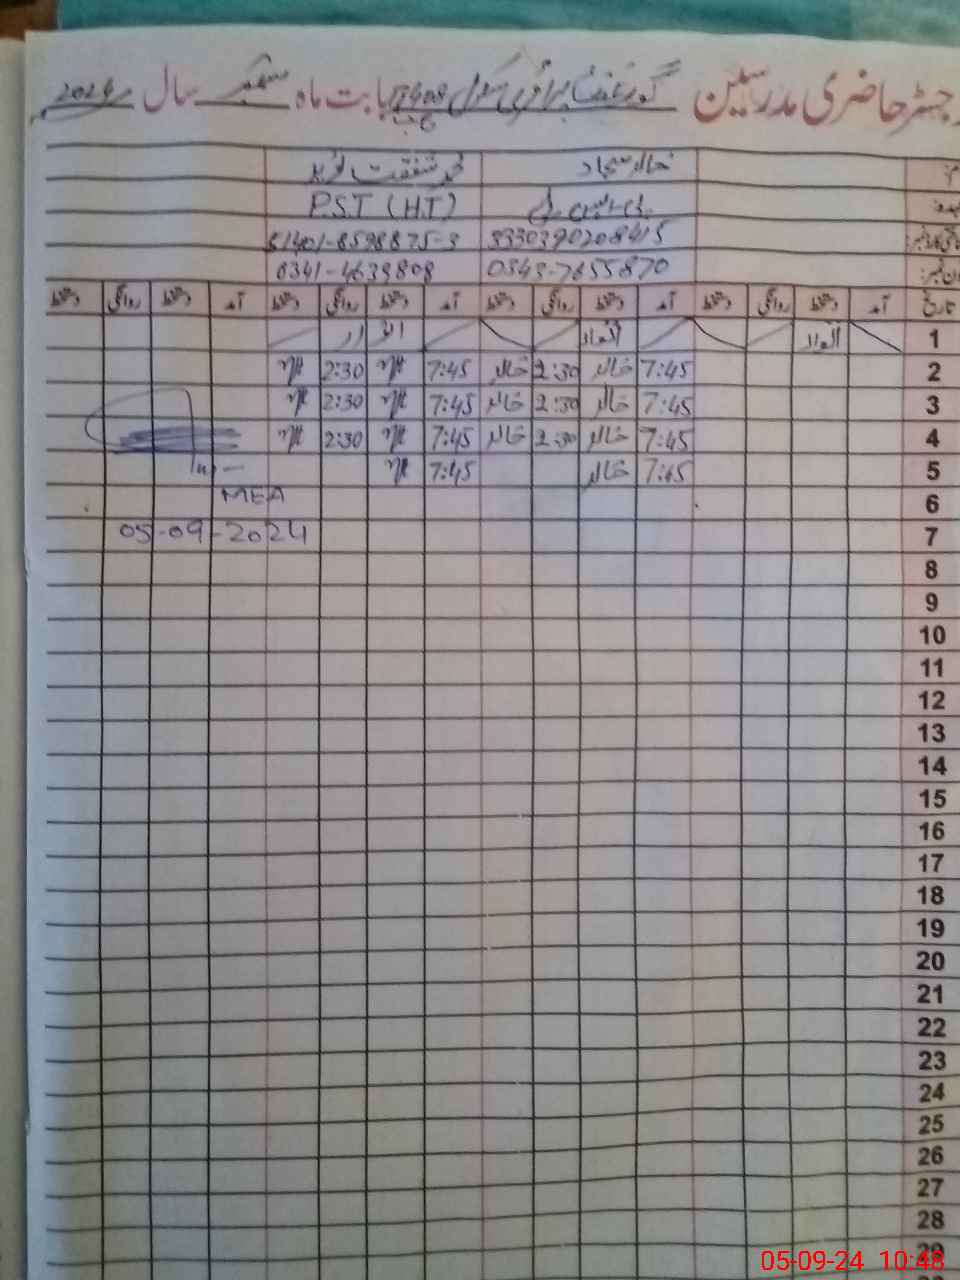 رجسٹر حاضری مدرسین گورنمنٹ پرائمری سکول بابت ماہ ستمبر سال 2024
خالد سجاد محمد شفقت
P.S.T (H.T)
3330390208415 81401-8598875-3
0343-7655870 0341-4639808
تاریخ آمد دستخط روانگی دستخط آمد دستخط روانگی دستخط آمد دستخط روانگی دستخط آمد دستخط روانگی دستخط
1 اتوار اتوار اتوار
2 7:45 خالد 2:30 خالد 7:45 2:30
3 7:45 خالد 2:30 خالد 7:45 2:30
4 7:45 خالد 2:30 خالد 7:45 2:30
5 7:45 خالد 7:45
6 MEA
7 05-09-2024
8
9
10
11
12
13
14
15
16
17
18
19
20
21
22
23
24
25
26
27
28
29
05-09-24 10:48